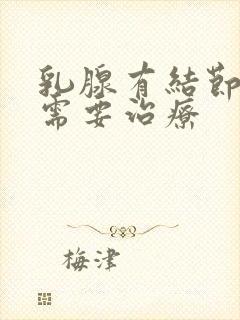 乳腺有結節
需要治療
梅津